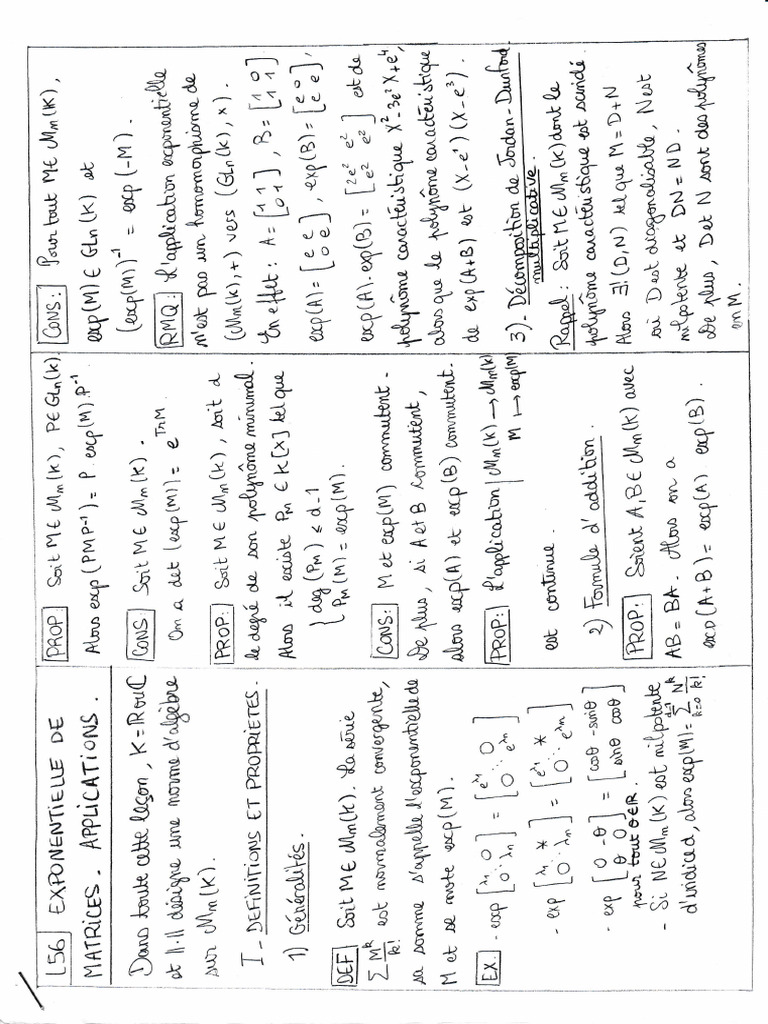 156 EXPONENTIELLE DE
MATRICES. APPLICATIONS.
Dans toute cette leçon, K=ℝ ou ℂ
et ||.|| désigne une norme d'algèbre
sur Mn(K).
I - DEFINITIONS ET PROPRIETES.
1) Généralités.
DEF Soit M∈Mn(K). La série
∑ M^k/k! est normalement convergente,
sa somme s'appelle l'exponentielle de
M et se note exp(M).
EX. - exp [λ1 0 ⋱ 0 λn] = [e^λ1 0 ⋱ 0 e^λn]
- exp [λ1 * ⋱ 0 λn] = [e^λ1 * ⋱ 0 e^λn]
- exp [0 -θ θ 0] = [cosθ -sinθ sinθ cosθ]
pour tout θ∈ℝ.
- Si N∈Mn(K) est nilpotente
d'indice d, alors exp(M) = ∑_{k=0}^{d-1} N^k/k!
PROP: Soit M∈Mn(K), P∈GLn(K).
Alors exp(PMP^-1) = P.exp(M).P^-1
CONS: Soit M∈Mn(K).
On a det(exp(M)) = e^TrM
PROP: Soit M∈Mn(K), soit d
le degré de son polynôme minimal.
Alors il existe PM ∈ K[X] tel que
{ deg(PM) ≤ d-1
PM(M) = exp(M).
CONS: M et exp(M) commutent.
De plus, si A et B commutent,
alors exp(A) et exp(B) commutent.
PROP: L'application | Mn(K) → Mn(K)
M ↦ exp(M)
est continue.
2) Formule d'addition.
PROP: Soient A,B∈Mn(K) avec
AB=BA. Alors on a
exp(A+B) = exp(A).exp(B).
CONS: Pour tout M∈Mn(K),
exp(M)∈GLn(K) et
(exp(M))^-1 = exp(-M).
RMQ: L'application exponentielle
n'est pas un homomorphisme de
(Mn(K),+) vers (GLn(K),×).
En effet: A = [1 1 0 1], B = [1 0 1 1]
exp(A) = [e e 0 e], exp(B) = [e 0 e e],
exp(A).exp(B) = [2e² e² e² e²] est de
polynôme caractéristique X²-3e²X+e⁴,
alors que le polynôme caractéristique
de exp(A+B) est (X-e¹)(X-e³).
3) - Décomposition de Jordan-Dunford
multiplicative.
Rappel: Soit M∈Mn(K) dont le
polynôme caractéristique est scindé
Alors ∃!(D,N) tel que M=D+N
où D est diagonalisable, N est
nilpotente et DN=ND.
De plus, D et N sont des polynômes
en M.